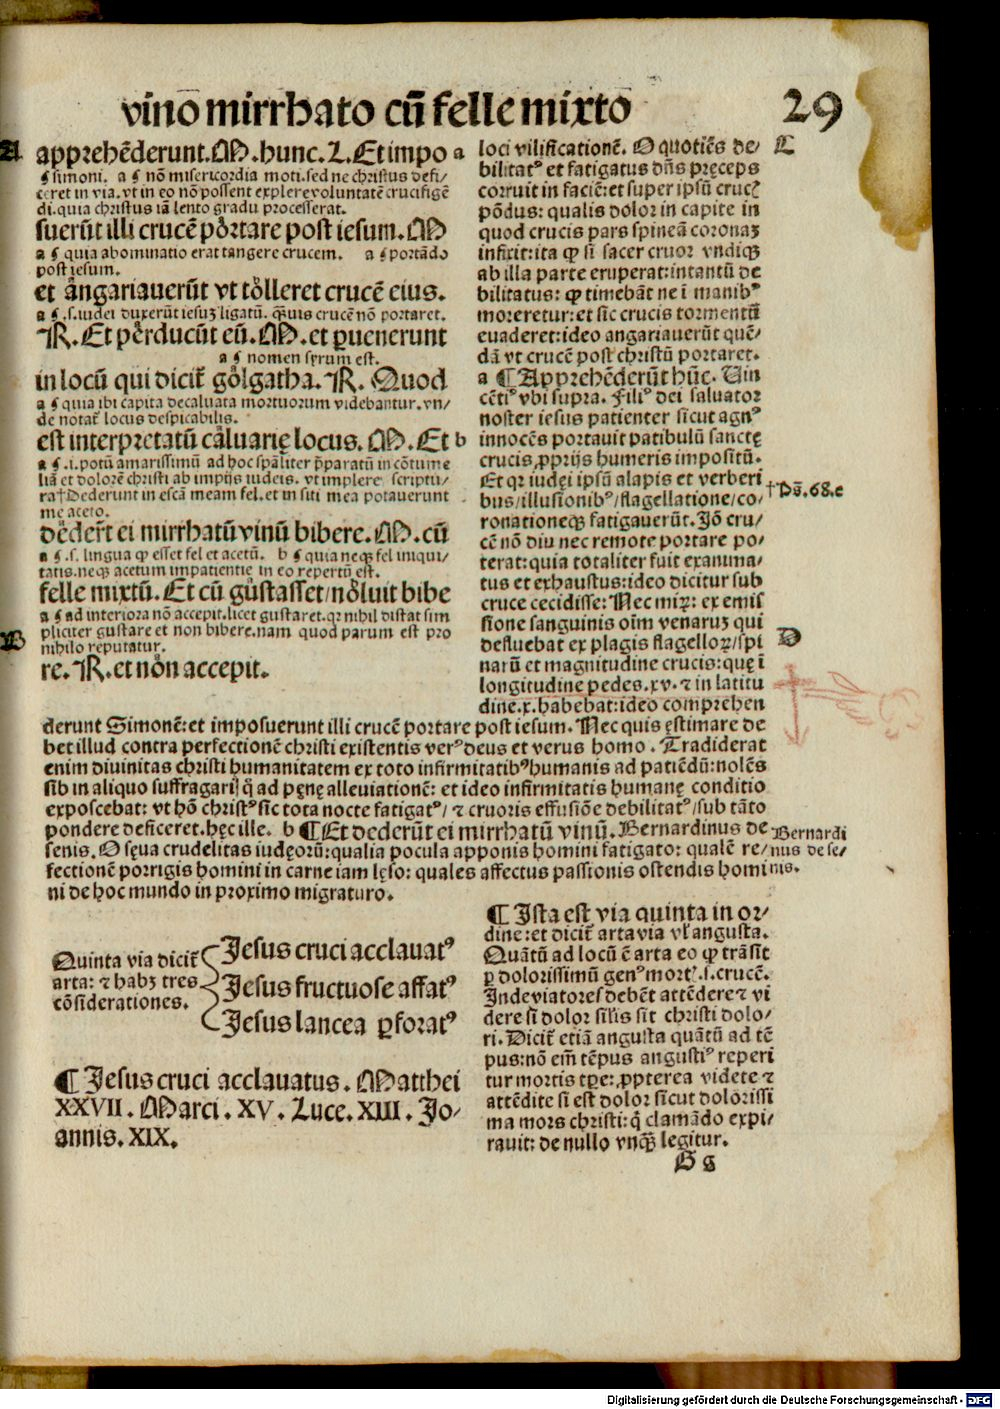 vino mirrhato cū felle mixto 29
A apprehēderunt.M.hunc.L.Et impo a
ꝗ simoni. a ꝗ nō misericordia moti.sed ne christus defi/
ceret in via.vt in eo nō possent explere voluntatē crucifigē
di.quia christus iā lento gradu processerat.
suerūt illi crucē portare post iesum.M
a ꝗ quia abominatio erat tangere crucem. a ꝗ portādo
post iesum.
et angariauerūt vt tolleret crucē eius.
a ꝗ .s.iudei duxerūt iesuꝫ ligatū. qᷓuis crucē nō portaret.
R.Et perducūt eū.M.et ꝑuenerunt
a ꝗ nomen syrum est.
in locū qui dicit᷑ golgatha.R. Quod
a ꝗ quia ibi capita decaluata mortuorum videbantur.vn/
de notat᷑ locus despicabilis.
est interpretatū caluarię locus.M.Et b
a ꝗ .i.potū amarissimū ad hoc spāliter p̄paratū in cōtume
liā et dolorē christi ab impijs iudeis. vt implere scriptu/
ra† Dederunt in escā meam fel.et in siti mea potauerunt
me aceto.
dedert᷑ ei mirrhatū vinū bibere.M.cū
a ꝗ .s. lingua ꝙ esset fel et acetū. b ꝗ quia neqꝫ fel iniqui/
tatis.neqꝫ acetum impatientie in eo repertū est.
felle mixtū.Et cū gustasset/noluit bibe
a ꝗ ad interiora nō accepit.licet gustaret.qr nihil distat sim
B pliciter gustare et non bibere.nam quod parum est pro
nihilo reputatur.
re.R.et non accepit.
loci vilificationē. O quotiēs de/ C
bilitatꝰ et fatigatus dn̄s pręceps
corruit in faciē:et super ipsū crucꝭ
pōdus: qualis dolor in capite in
quod crucis pars spineā coronaꝫ
infixit:ita ꝙ si sacer cruor vndiqꝫ
ab illa parte eruperat:intantū de
bilitatus: ꝙ timebāt ne ī manibꝰ
moreretur:et sic crucis tormentū
euaderet:ideo angariauerūt quē/
dā vt crucē post christū portaret.
a ¶ Apprehēderūt hūc. Vin
cētiꝰ vbi supra. Filiꝰ dei saluator
noster iesus patienter sicut agnꝰ
innocēs portauit patibulū sanctę
crucis,ꝓprijs humeris impositū.
Et qr iudęi ipsū alapis et verberi †Ps.68.e
bus/illusionibꝰ/flagellatione/co/
ronationeqꝫ fatigauerūt. Jō cru/
cē nō diu nec remote portare po/
terat:quia totaliter fuit exanima/
tus et exhaustus:ideo dicitur sub
cruce cecidisse: Nec miꝝ: ex emis
sione sanguinis oīm venaruꝫ qui
defluebat ex plagis flagelloꝝ/spi D
narū et magnitudine crucis:quę ī
longitudine pedes.xv.⁊ in latitu
dine.x.habebat:ideo comprehen
derunt Simonē:et imposuerunt illi crucē portare post iesum. Nec quis ęstimare de
bet illud contra perfectionē christi existentis verꝰ deus et verus homo . Tradiderat
enim diuinitas christi humanitatem ex toto infirmitatibꝰ humanis ad patiēdū:nolēs
sib in aliquo suffragari/ q̄ ad pęnę alleuiationē: et ideo infirmitatis humanę conditio
exposcebat: vt hō christꝰ sic tota nocte fatigatꝰ/ ⁊ cruoris effusiōe debilitatꝰ/sub tāto
pondere deficeret.hęc ille. b ¶ Et dederūt ei mirrhatū vinū. Bernardinus de Bernardi
senis. O sęua crudelitas iudęorū:qualia pocula apponis homini fatigato: qualē re/ nus de se/
fectionē porrigis homini in carne iam lęso: quales affectus passionis ostendis homi nis.
ni de hoc mundo in proximo migraturo.
Quinta via dicit᷑
arta: ⁊ habꝫ tres
cōsiderationes.
Jesus cruci acclauatꝰ
Jesus fructuose affatꝰ
Jesus lancea ꝑforatꝰ
¶ Jesus cruci acclauatus . Matthei
XXVII . Marci . XV . Luce. XIII . Jo/
annis. XIX.
¶ Ista est via quinta in or/
dine:et dicit᷑ arta via vl̓ angusta.
Quātū ad locū ē arta eo ꝙ trāsit
ꝑ dolorissimū genꝰ mortꝭ.s.crucē.
Indeuiatores debēt attēdere ⁊ vi
dere si dolor sil̓is sit christi dolo/
ri. Dicit᷑ etiā angusta quātū ad tē
pus:nō em̄ tēpus angustiꝰ reperi
tur mortis tp̄e:,ꝓpterea videte ⁊
attēdite si est dolor sicut dolorissi
ma mors christi: q̄ clamādo expi/
rauit: de nullo vnqᷓꝫ legitur.
B g
Digitalisierung gefördert durch die Deutsche Forschungsgemeinschaft - DFG